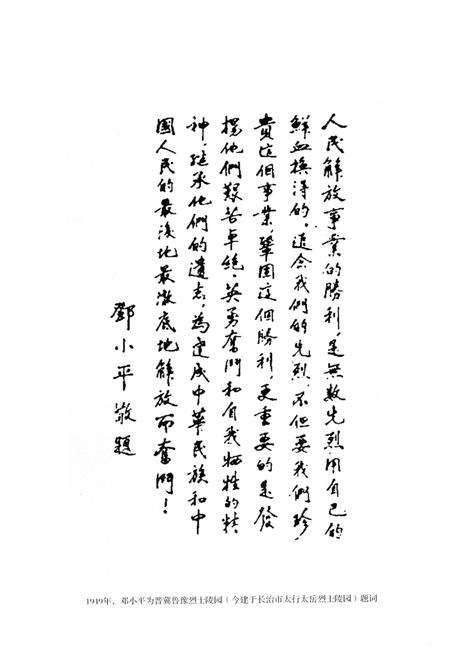 人民解放事業的勝利，是無數先烈用自己的
鮮血換得的。追念我們的先烈，不但要我們珍
貴這個事業，鞏固這個勝利，更重要的是發
揚他們艱苦卓絕、英勇奮鬥和自我牺牲的精
神，繼承他們的遺志，為達成中華民族和中
國人民的最後地最澈底地解放而奮鬥！
鄧小平敬題
1949年，邓小平为晋冀鲁豫烈士陵园（今建于长治市太行太岳烈士陵园）题词